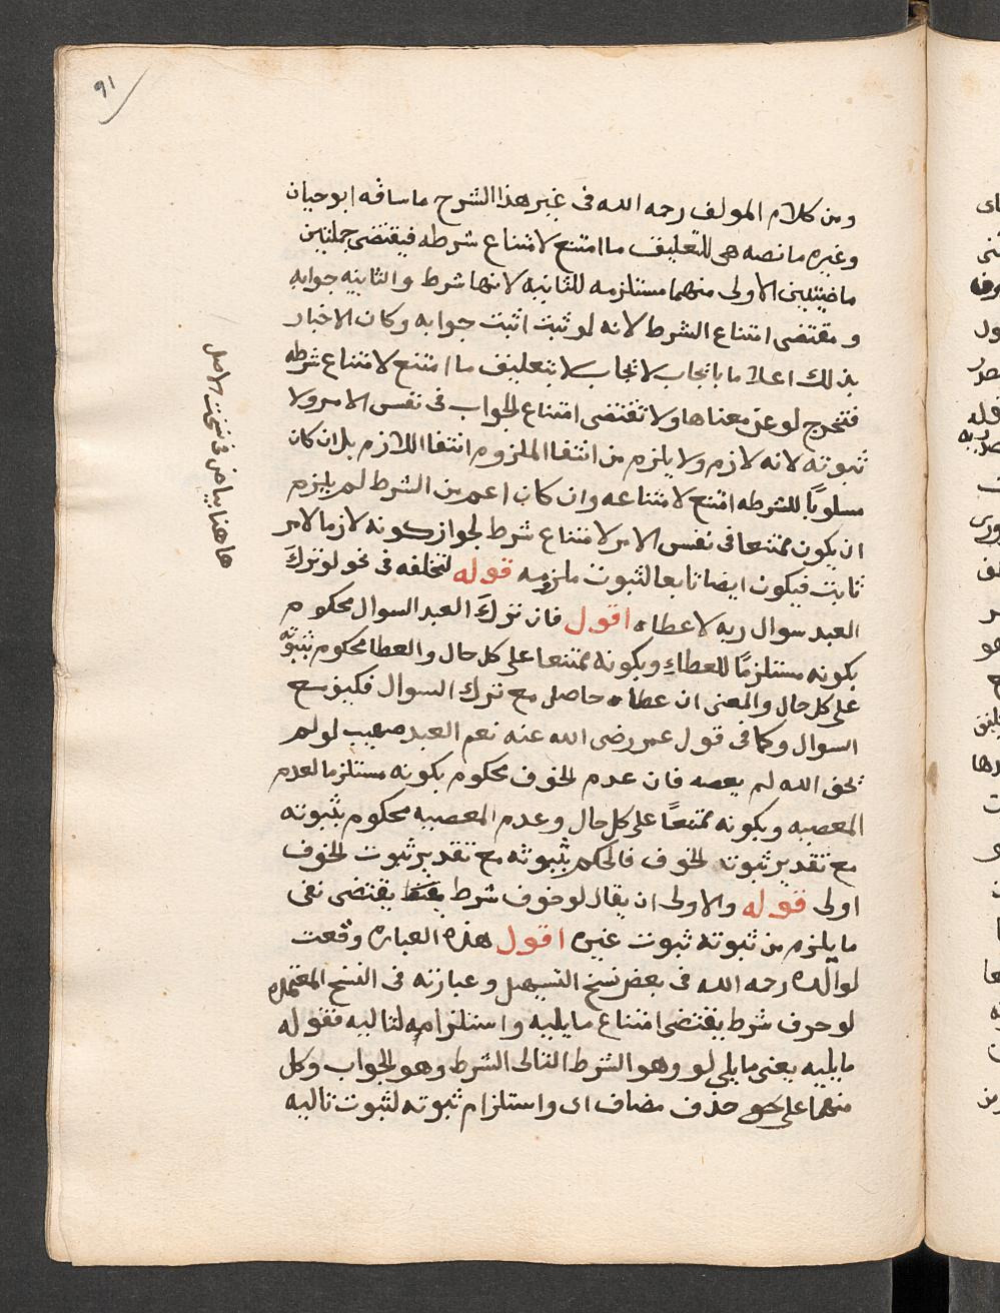 ٩١
ومن كلام المولف رحمه الله فى غير هذا الشرح ما ساقه ابو حيان
وغيره ما نصه هى للتعليق ما امتنع لامتناع شرطه فيقتضى جملتين
ماضيتين الاولى منهما مستلزمه للثانيه لانها شرط والثانيه جوابه
ومقتضى امتناع الشرط لانه لو ثبت اثبت جوابه وكان الاخبار
بذلك اعلاما بايجاب لايجاب لا بتعليق ما امتنع لامتناع شرطه
فتخرج لو عن معناها ولا تقتضى امتناع الجواب فى نفس الامر ولا
ثبوته لانه لازم ولا يلزم من انتفا الملزوم انتفا اللازم بل ان كان
مسلوبا للشرطه امتنع لامتناعه وان كان اعم من الشرط لم يلزم
ان يكون ممتنعا فى نفس الامر لامتناع شرط لجواز كونه لازما لامر
ثابت فيكون ايضا تابعا لثبوت ملزومه قوله لتخلفه فى نحو لو ترك
العبد سوال ربه لاعطاه اقول فان ترك العبد السوال محكوم
بكونه مستلزمًا للعطاء وبكونه ممتنعا على كل حال والعطا محكوم بثبوته
على كل حال والمعنى ان عطاه حاصل مع ترك السوال فكيف مع
السوال وكما فى قول عمر رضى الله عنه نعم العبد صهيب لو لم
يخف الله لم يعصه فان عدم الخوف محكوم بكونه مستلزما لعدم
المعصيه وبكونه ممتنعًا على كل حال وعدم المعصيه محكوم بثبوته
مع تقدير ثبوته الخوف فالحكم بثبوته مع تقدير ثبوت الخوف
اولى قوله والاولى ان يقال لو خوف شرط يقتضى نفى
ما يلزم من ثبوته ثبوت غيره اقول هذه العباره وقعت
لوالده رحمه الله فى بعض نسخ التسهيل وعبارته فى النسخ المعتمده
لو حرف شرط يقتضى امتناع ما يليه واستلزامه لتاليه فقوله
ما يليه يعنى ما يلى لو وهو الشرط التالى الشرط وهو الجواب وكل
منهما على حذف مضاف اى واستلزام ثبوته لثبوت تاليه
هاهنا بياض فى نسخت الاصل